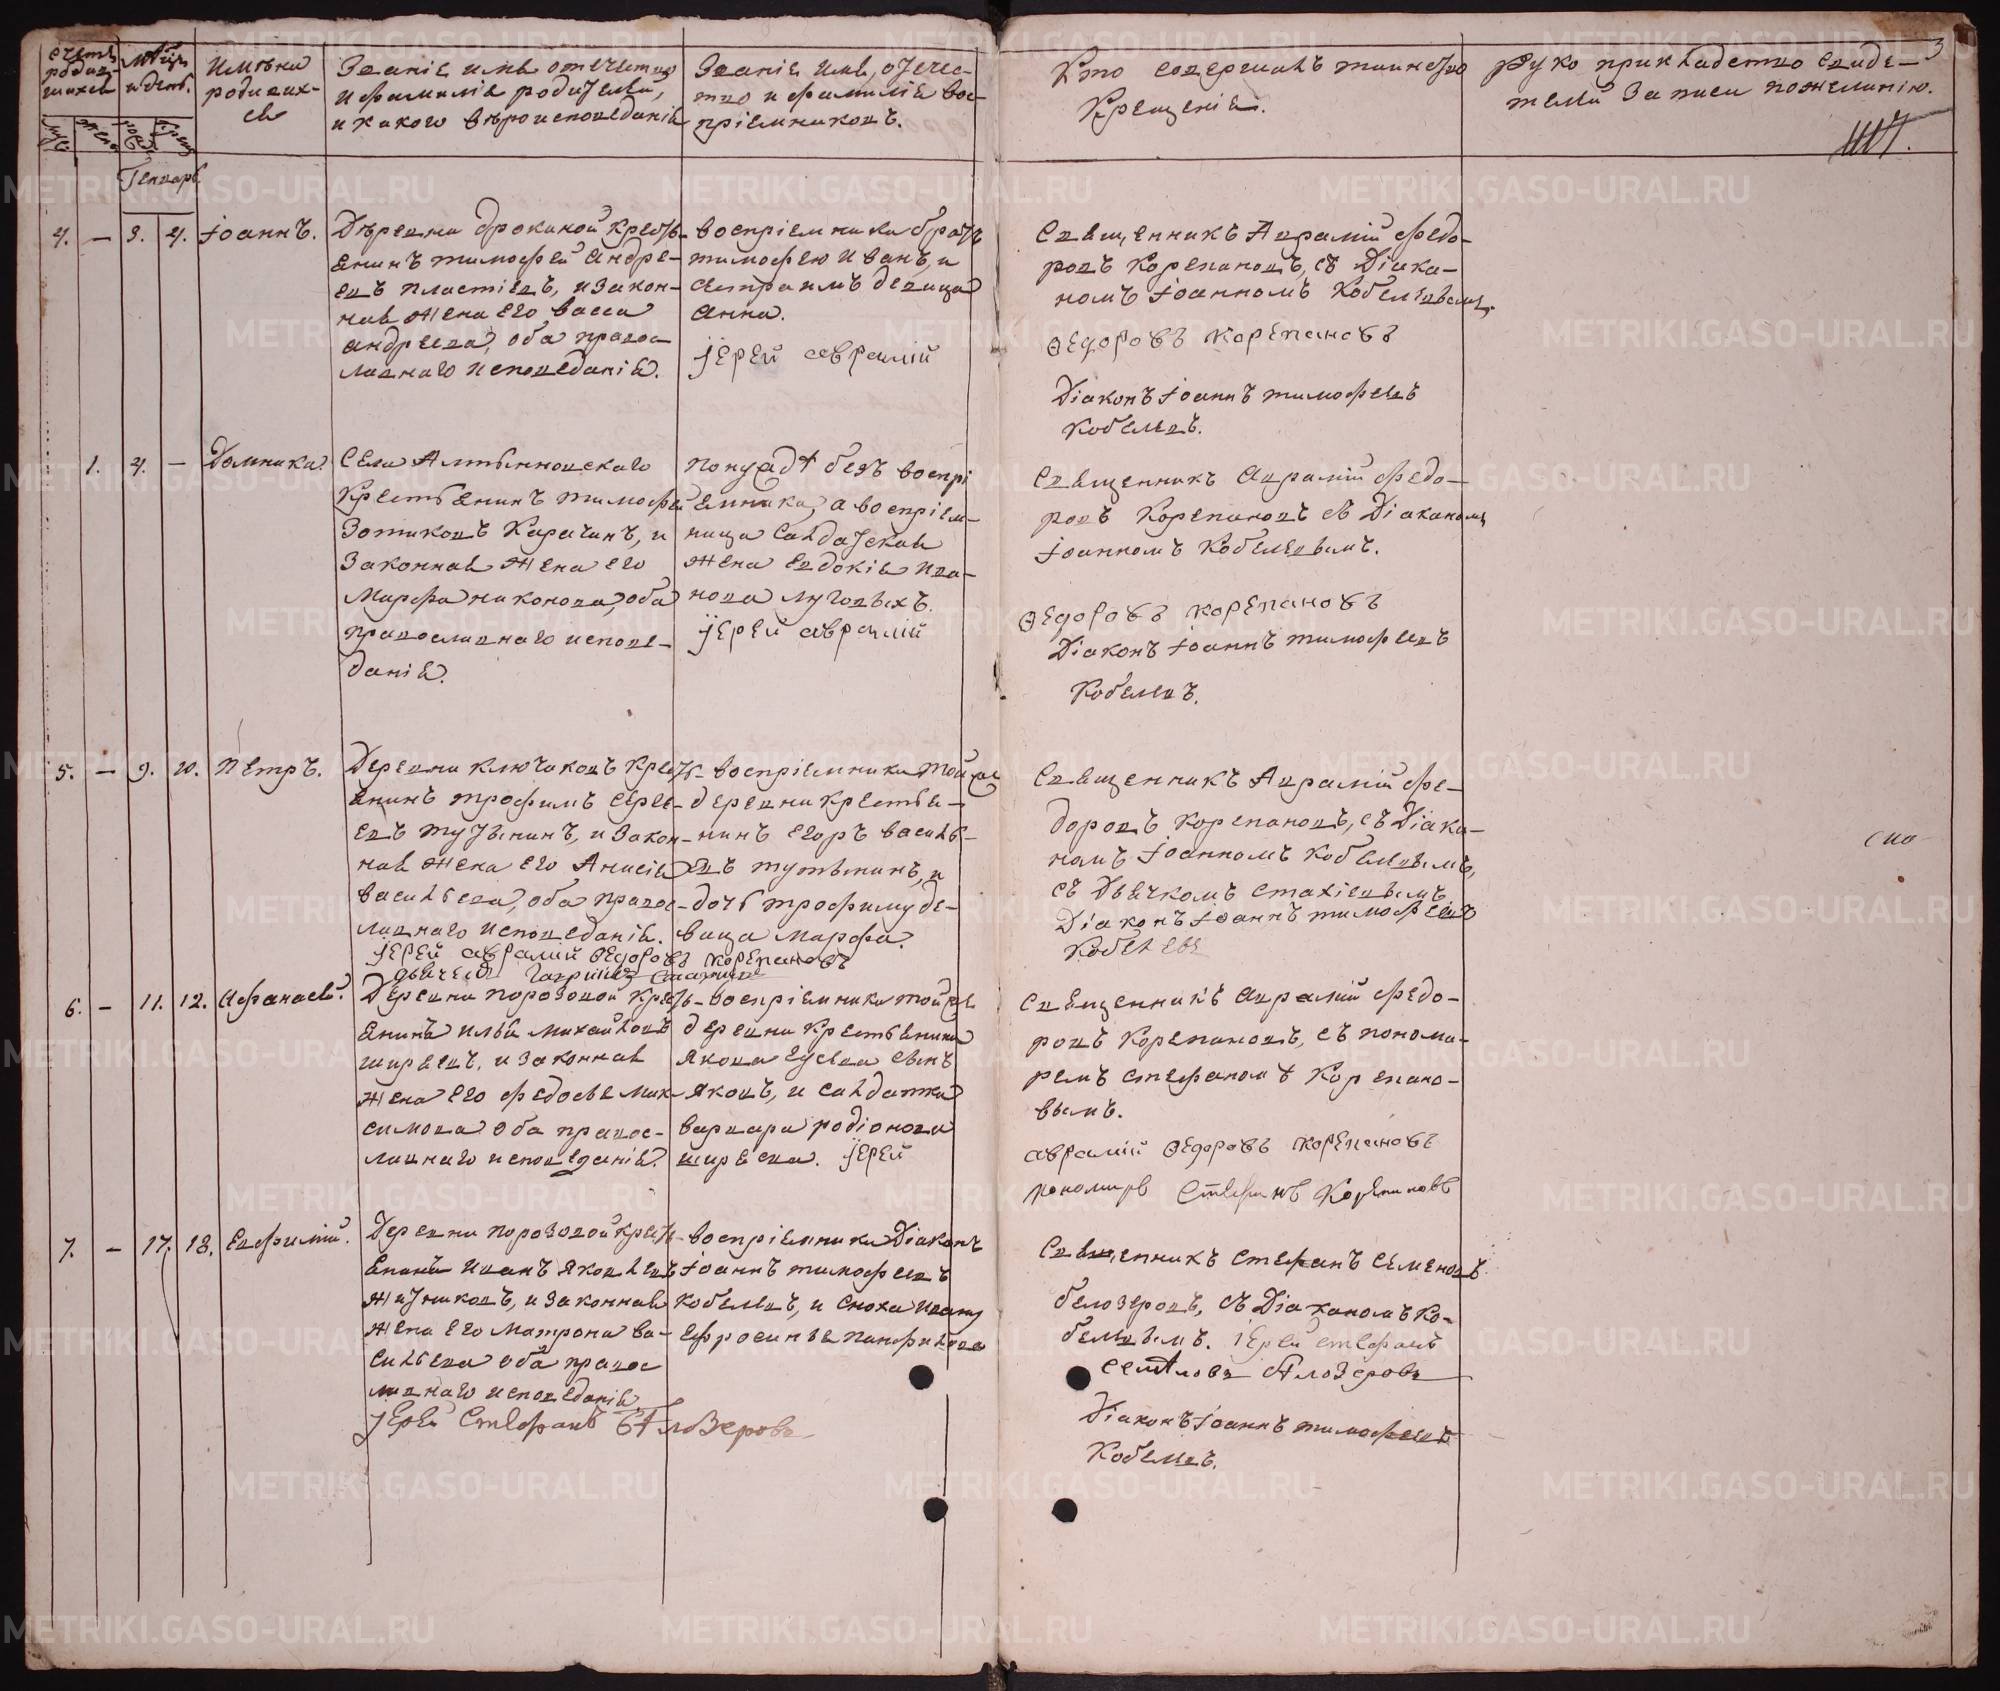 Счетъ родив-шихся
мѣсяцъ и день.
Имѣна родивих-ся
Званіе имя отечество
и фамилія родителей,
и какого вѣроисповеданія
Званіе имя, отече-
тво и фамилія вос-
пріемниковъ.
Кто совершалъ таинство
Крещенія.
Руко прикладство свиде-
телей записи пожеланію.
3
Генварь
4. — 3. 4. Іоаннъ.
Дѣревни Крестъ-
янинъ тимофей андре-
евъ пластіевъ, и закон-
ная жена его васса
андреева, оба правос-
лавнаго исповеданія.
воспріемники братъ
тимофею Иванъ, и
девица
анна.
іерей аврамій
Священникъ Аврамій федо-
ровъ Корепановъ, съ Діяка-
номъ Іоанномъ Кобелевымъ.
Ѳедоровъ корепановъ
Діаконъ Іоаннъ тимофеевъ
Кобелевъ.
1. 4. — Домника.
Села Алтынновскаго
Крестьянинъ тимофей
Зотиковъ Карачинъ, и
Законная жена его
Марфа никонова, оба
православнаго испове-
данія.
безъ воспрі
емника, а воспріем-
ница салдатская
жена евдокія ива-
нова луговыхъ.
іерей аврамій
Священникъ аврамій федо-
ровъ Корепановъ съ Діакономъ
Іоанномъ Кобелевымъ.
Ѳедоровъ корепановъ
Діаконъ Іоаннъ тимофеевъ
Кобелевъ.
5. — 9. 10. Петръ.
Деревни ключиковъ крестъ-
янинъ трофимъ сѣрге-
евъ тутынинъ, и закон-
ная жена его Анисія
васильева, оба правос-
лавнаго исповеданія.
воспріемники той же
деревни крестья-
нинъ егоръ василь-
евъ тутынинъ, и
дочь трофиму де-
вица марфа.
іерей аврамій Ѳедоровъ корепановъ
дьячекъ
Священникъ Аврамій фе-
доровъ корепановъ, съ Діако-
номъ Іоанномъ Кобелевымъ,
съ Дьячкомъ стахіевымъ
Діаконъ Іоаннъ тимофеевъ
Кобелевъ
6. — 11. 12. Афанасей.
Деревни порозовой крестъ-
янинъ илья михайловъ
ширяевъ, и законная
жена его федосья мак-
симова оба правос-
лавнаго исповеданія.
воспріемники той же
деревни крестьянина
якова сынъ
яковъ, и салдатка
варвара родіонова
ширяева. іерей
Священникъ аврамій федо-
ровъ Корепановъ, съ понома-
ремъ стефаномъ Корепано-
вымъ.
аврамій Ѳедоровъ корепановъ
пономарь Стефанъ Корепановъ
7. — 17. 18. Евфимій.
Деревни порозовой крестъ-
янинъ иванъ яковлевъ
житниковъ, и законная
жена его матрона ва-
сильева оба правос
лавнаго исповеданія
іерей Стефанъ Бѣлозеровъ
воспріемники Діаконъ
Іоаннъ тимофеевъ
кобелевъ, и сноха ивану
ефросинья панфилова
Священникъ стефанъ семеновъ
белозеровъ, съ Діакономъ Ко-
белевымъ. іерей стефанъ
Бѣлозеровъ
Діаконъ Іоаннъ тимофеевъ
Кобелевъ.